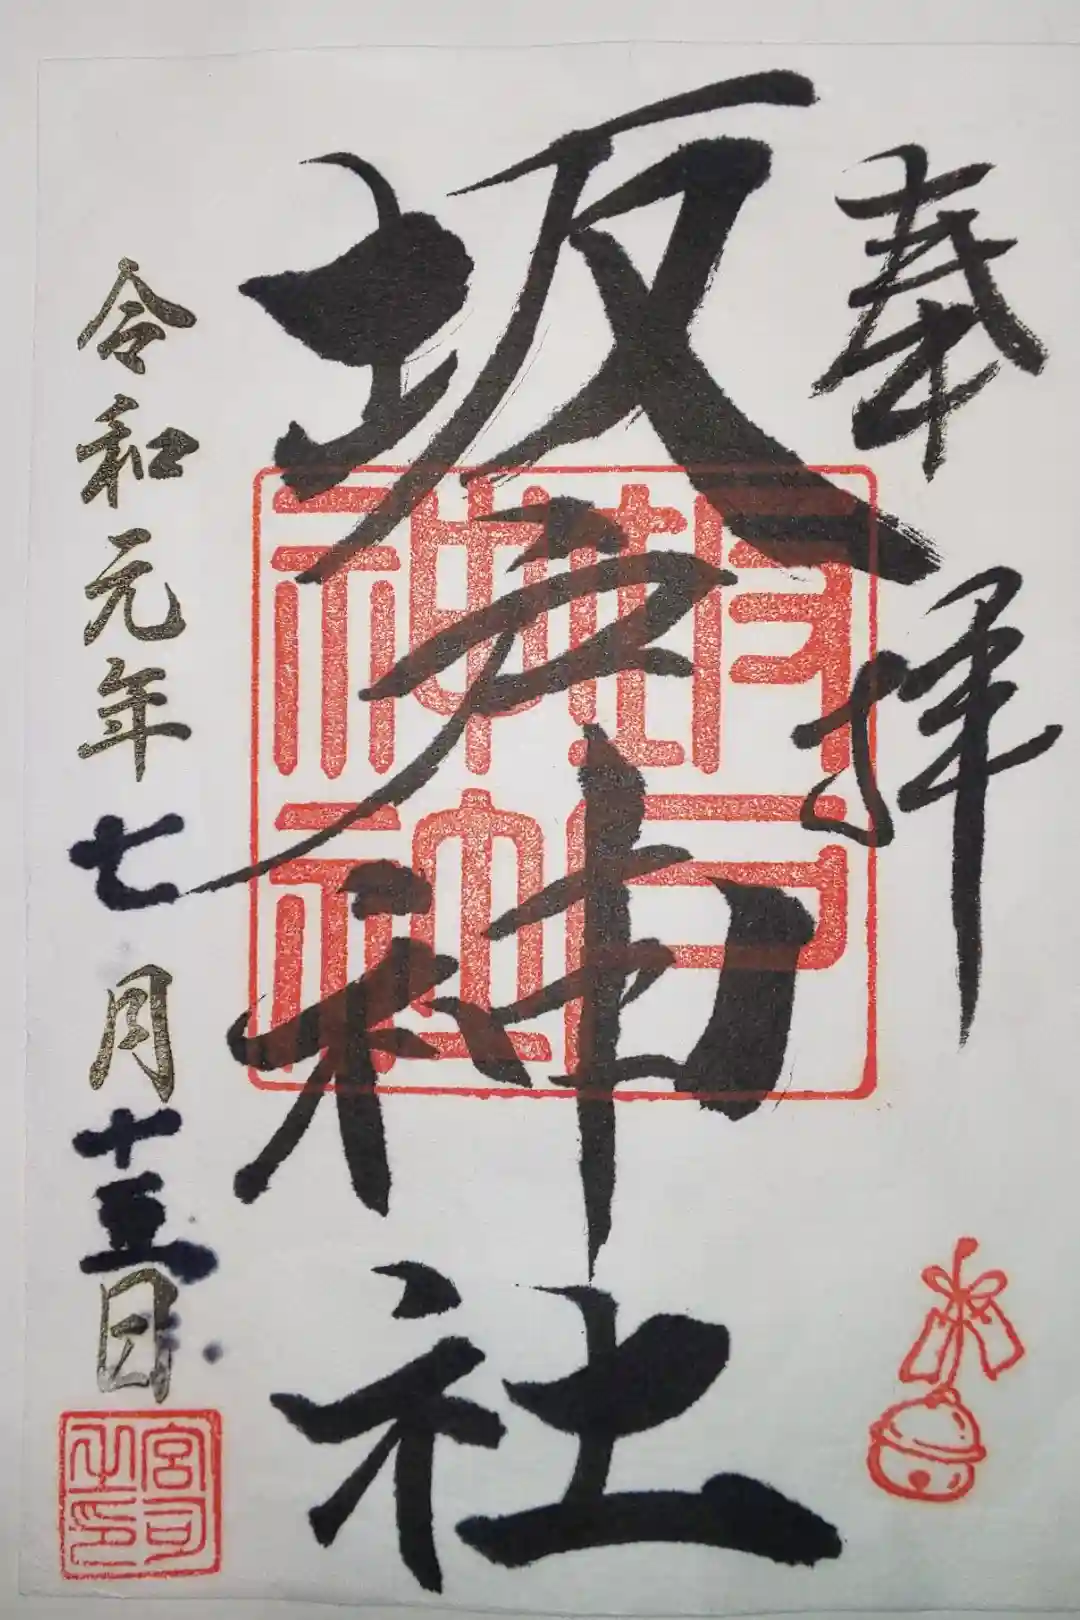 奉拝
坂戸神社
坂戸
神社
令和元年七月十五日
宮司
之印